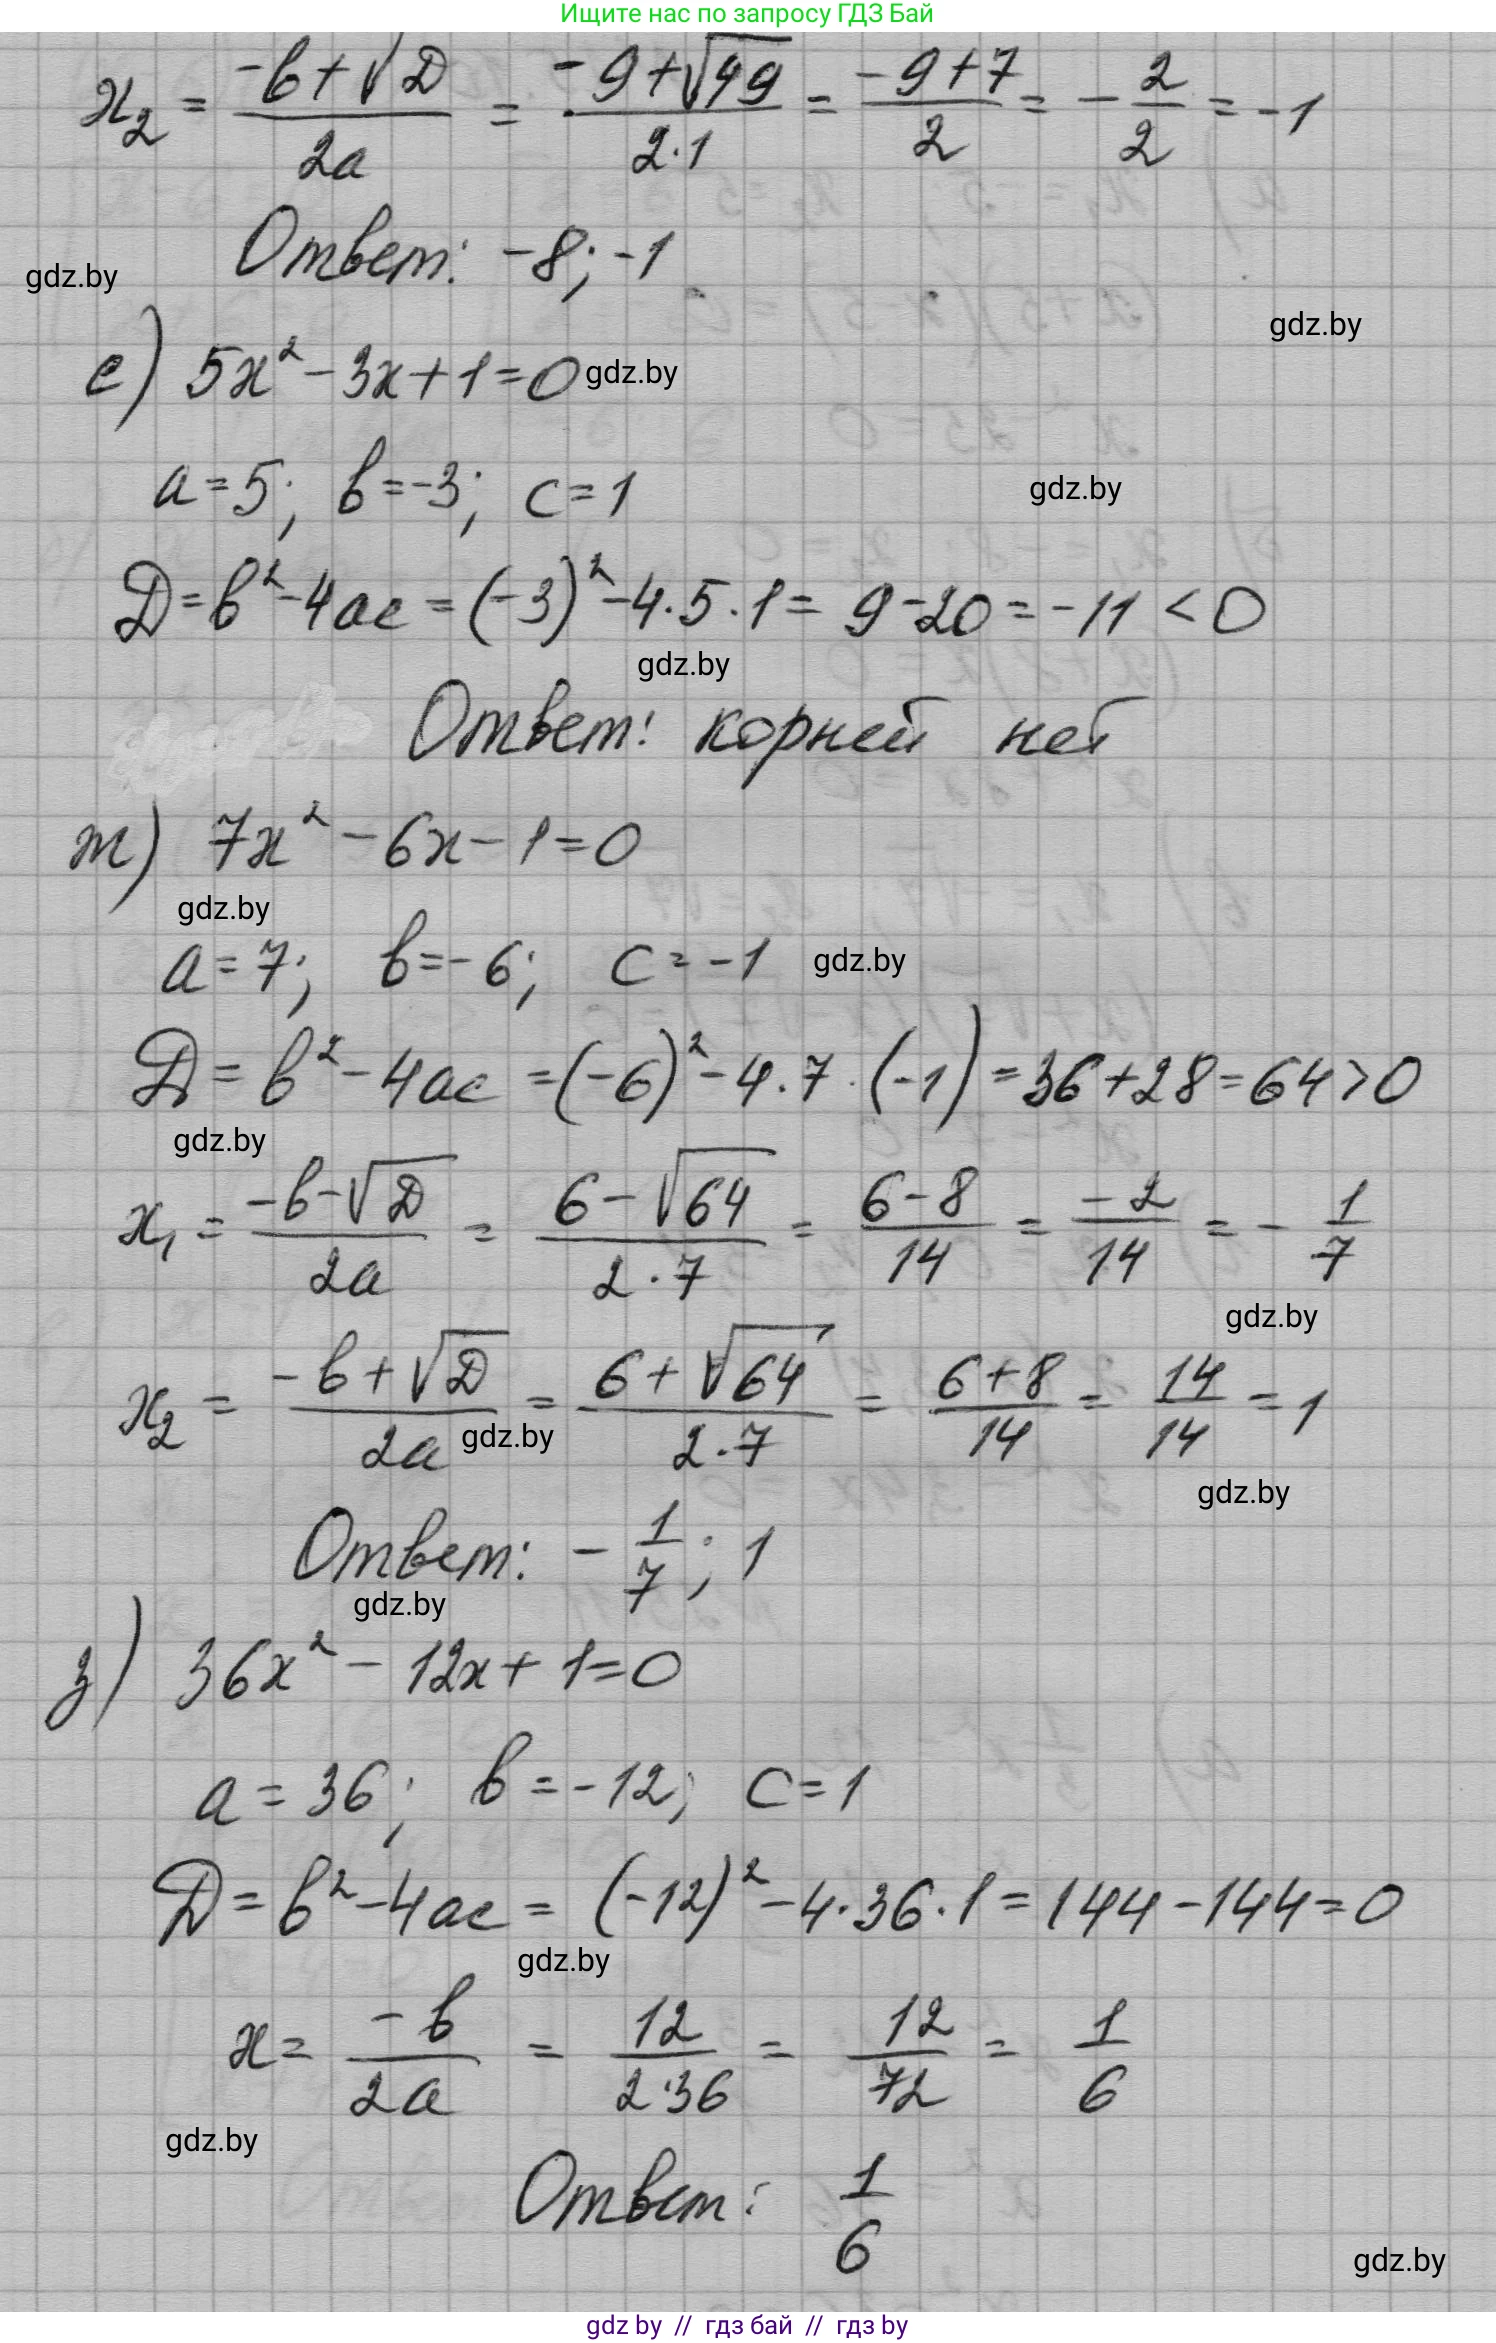 Ищите нас по запросу ГДЗ Бай
x₂ = (-b+√D)/(2a) = (-9+√49)/(2·1) = (-9+7)/2 = -2/2 = -1
Ответ: -8; -1
gdz.by
gdz.by
е) 5x²-3x+1=0 gdz.by
a=5; b=-3; c=1
gdz.by
D=b²-4ac=(-3)²-4·5·1=9-20=-11<0
gdz.by
Ответ: корней нет
ж) 7x²-6x-1=0
gdz.by
a=7; b=-6; c=-1 gdz.by
D=b²-4ac=(-6)²-4·7·(-1)=36+28=64>0
gdz.by
x₁ = (-b-√D)/(2a) = (6-√64)/(2·7) = (6-8)/14 = -2/14 = -1/7
gdz.by
x₂ = (-b+√D)/(2a) = (6+√64)/(2·7) = (6+8)/14 = 14/14 = 1
gdz.by
gdz.by
Ответ: -1/7; 1
gdz.by
з) 36x²-12x+1=0
a=36; b=-12; c=1
D=b²-4ac=(-12)²-4·36·1=144-144=0
gdz.by
x = -b/(2a) = 12/(2·36) = 12/72 = 1/6
gdz.by
Ответ: 1/6
gdz.by
gdz by // гдз бай // гдз by